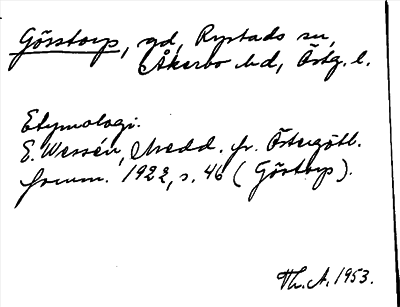 Görstorp, gd, Rystads sn,
Åkerbo hd, Östg. l.
Etymologi:
E. Wessén, Medd. fr. Östergötl.
fornm. 1922, s. 46 (Görstorp).
Th. A. 1953.